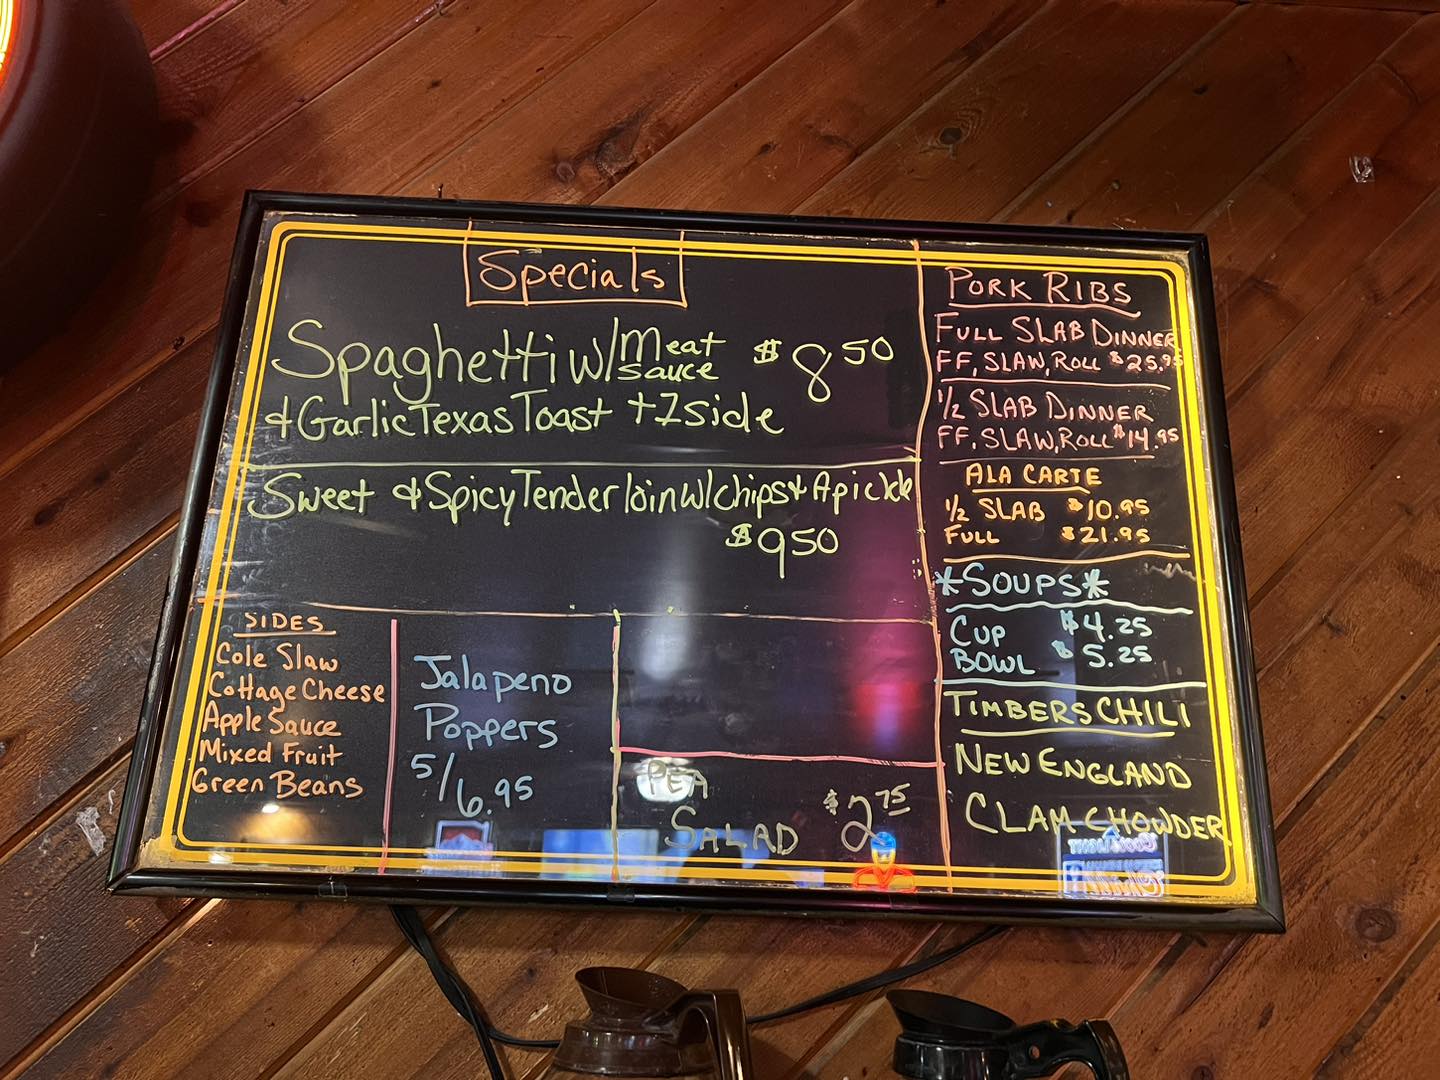 Specials
Spaghetti w/ Meat sauce $8 50
& Garlic Texas Toast + 1 side
Sweet & Spicy Tenderloin w/ chips & A pickle
$9 50
SIDES
Cole Slaw
Cottage Cheese
Apple Sauce
Mixed Fruit
Green Beans
Jalapeno
Poppers
5/6.95
PEA
SALAD $2 75
PORK RIBS
FULL SLAB DINNER
FF, SLAW, ROLL $25.95
1/2 SLAB DINNER
FF, SLAW, ROLL $14.95
ALA CARTE
1/2 SLAB $10.95
FULL $21.95
*SOUPS*
CUP $4.25
BOWL $5.25
TIMBERS CHILI
NEW ENGLAND
CLAM CHOWDER